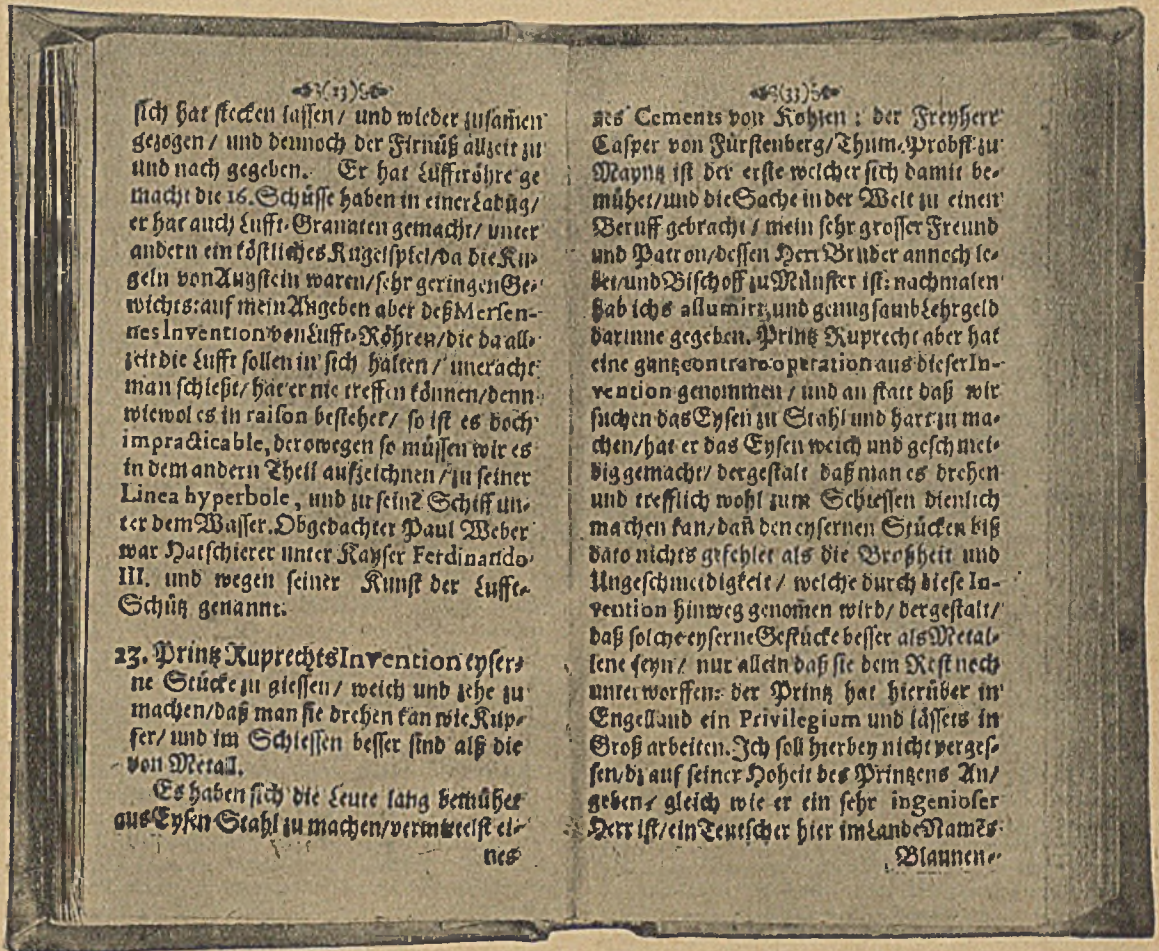 (23)
sich hat stecken lassen/ und wieder zusam̃en
gezogen/ und dennoch der Firnüß allzeit zu
und nach gegeben. Er hat Lufftröhre ge
macht die 16. Schüsse haben in einer Ladũg/
er hat auch Lufft-Granaten gemacht/ unter
andern ein köstliches Kugelspiel/da die Ku-
geln von Augstein waren/sehr geringen Ge-
wichts: auf mein Angeben aber deß Mersen-
nes Invention von Lufft-Röhren/die da all-
zeit die Lufft sollen in sich halten/ uneracht
man schießt/ hat er nie treffen können/denn
wiewol es in raison bestehet/ so ist es doch
impracticable, derowegen so müssen wir es
in dem andern Theil aufzeichnen/ zu seiner
Linea hyperbole, und zu seinẽ Schiff un-
ter dem Wasser. Obgedachter Paul Weber
war Hatschierer unter Kayser Ferdinando
III. und wegen seiner Kunst der Lufft-
Schütz genannt.
23. Printz Ruprechts Invention eyser-
ne Stücke zu giessen/ weich und zehe zu
machen/daß man sie drehen kan wie Kup-
fer/ und im Schiessen besser sind alß die
von Metall.
Es haben sich die Leute lang bemühet
aus Eysen Stahl zu machen/vermittelst ei-
nes
(33)
nes Cements von Kohlen: der Freyherr
Casper von Fürstenberg/Thum-Probst zu
Mayntz ist der erste welcher sich damit be-
mühet/und die Sache in der Welt zu einen
Beruff gebracht/ mein sehr grosser Freund
und Patron/dessen Herr Bruder annoch le-
bet/und Bischoff zu Münster ist: nachmalen
hab ichs assumirt, und genugsamb Lehrgeld
darinne gegeben. Printz Ruprecht aber hat
eine gantz contrare operation aus dieser In-
vention genommen/ und an statt daß wir
suchen das Eysen zu Stahl und hart zu ma-
chen/hat er das Eysen weich und geschmei-
dig gemacht/ dergestalt daß man es drehen
und trefflich wohl zum Schiessen dienlich
machen kan/dañ den eysernen Stücken biß
dato nichts gefehlet als die Broßheit und
Ungeschmeidigkeit/ welche durch diese In-
vention hinweg genom̃en wird/ dergestalt/
daß solche eyserne Gestücke besser als Metal-
lene seyn/ nur allein daß sie dem Rost noch
unterworffen: der Printz hat hierüber in
Engelland ein Privilegium und lässets in
Groß arbeiten. Ich soll hierbey nicht verges-
sen/dz auf seiner Hoheit des Printzens An/
geben/ gleich wie er ein sehr ingenioser
Herr ist/ein Teutscher hier im Lande Namẽs
Blaunen-